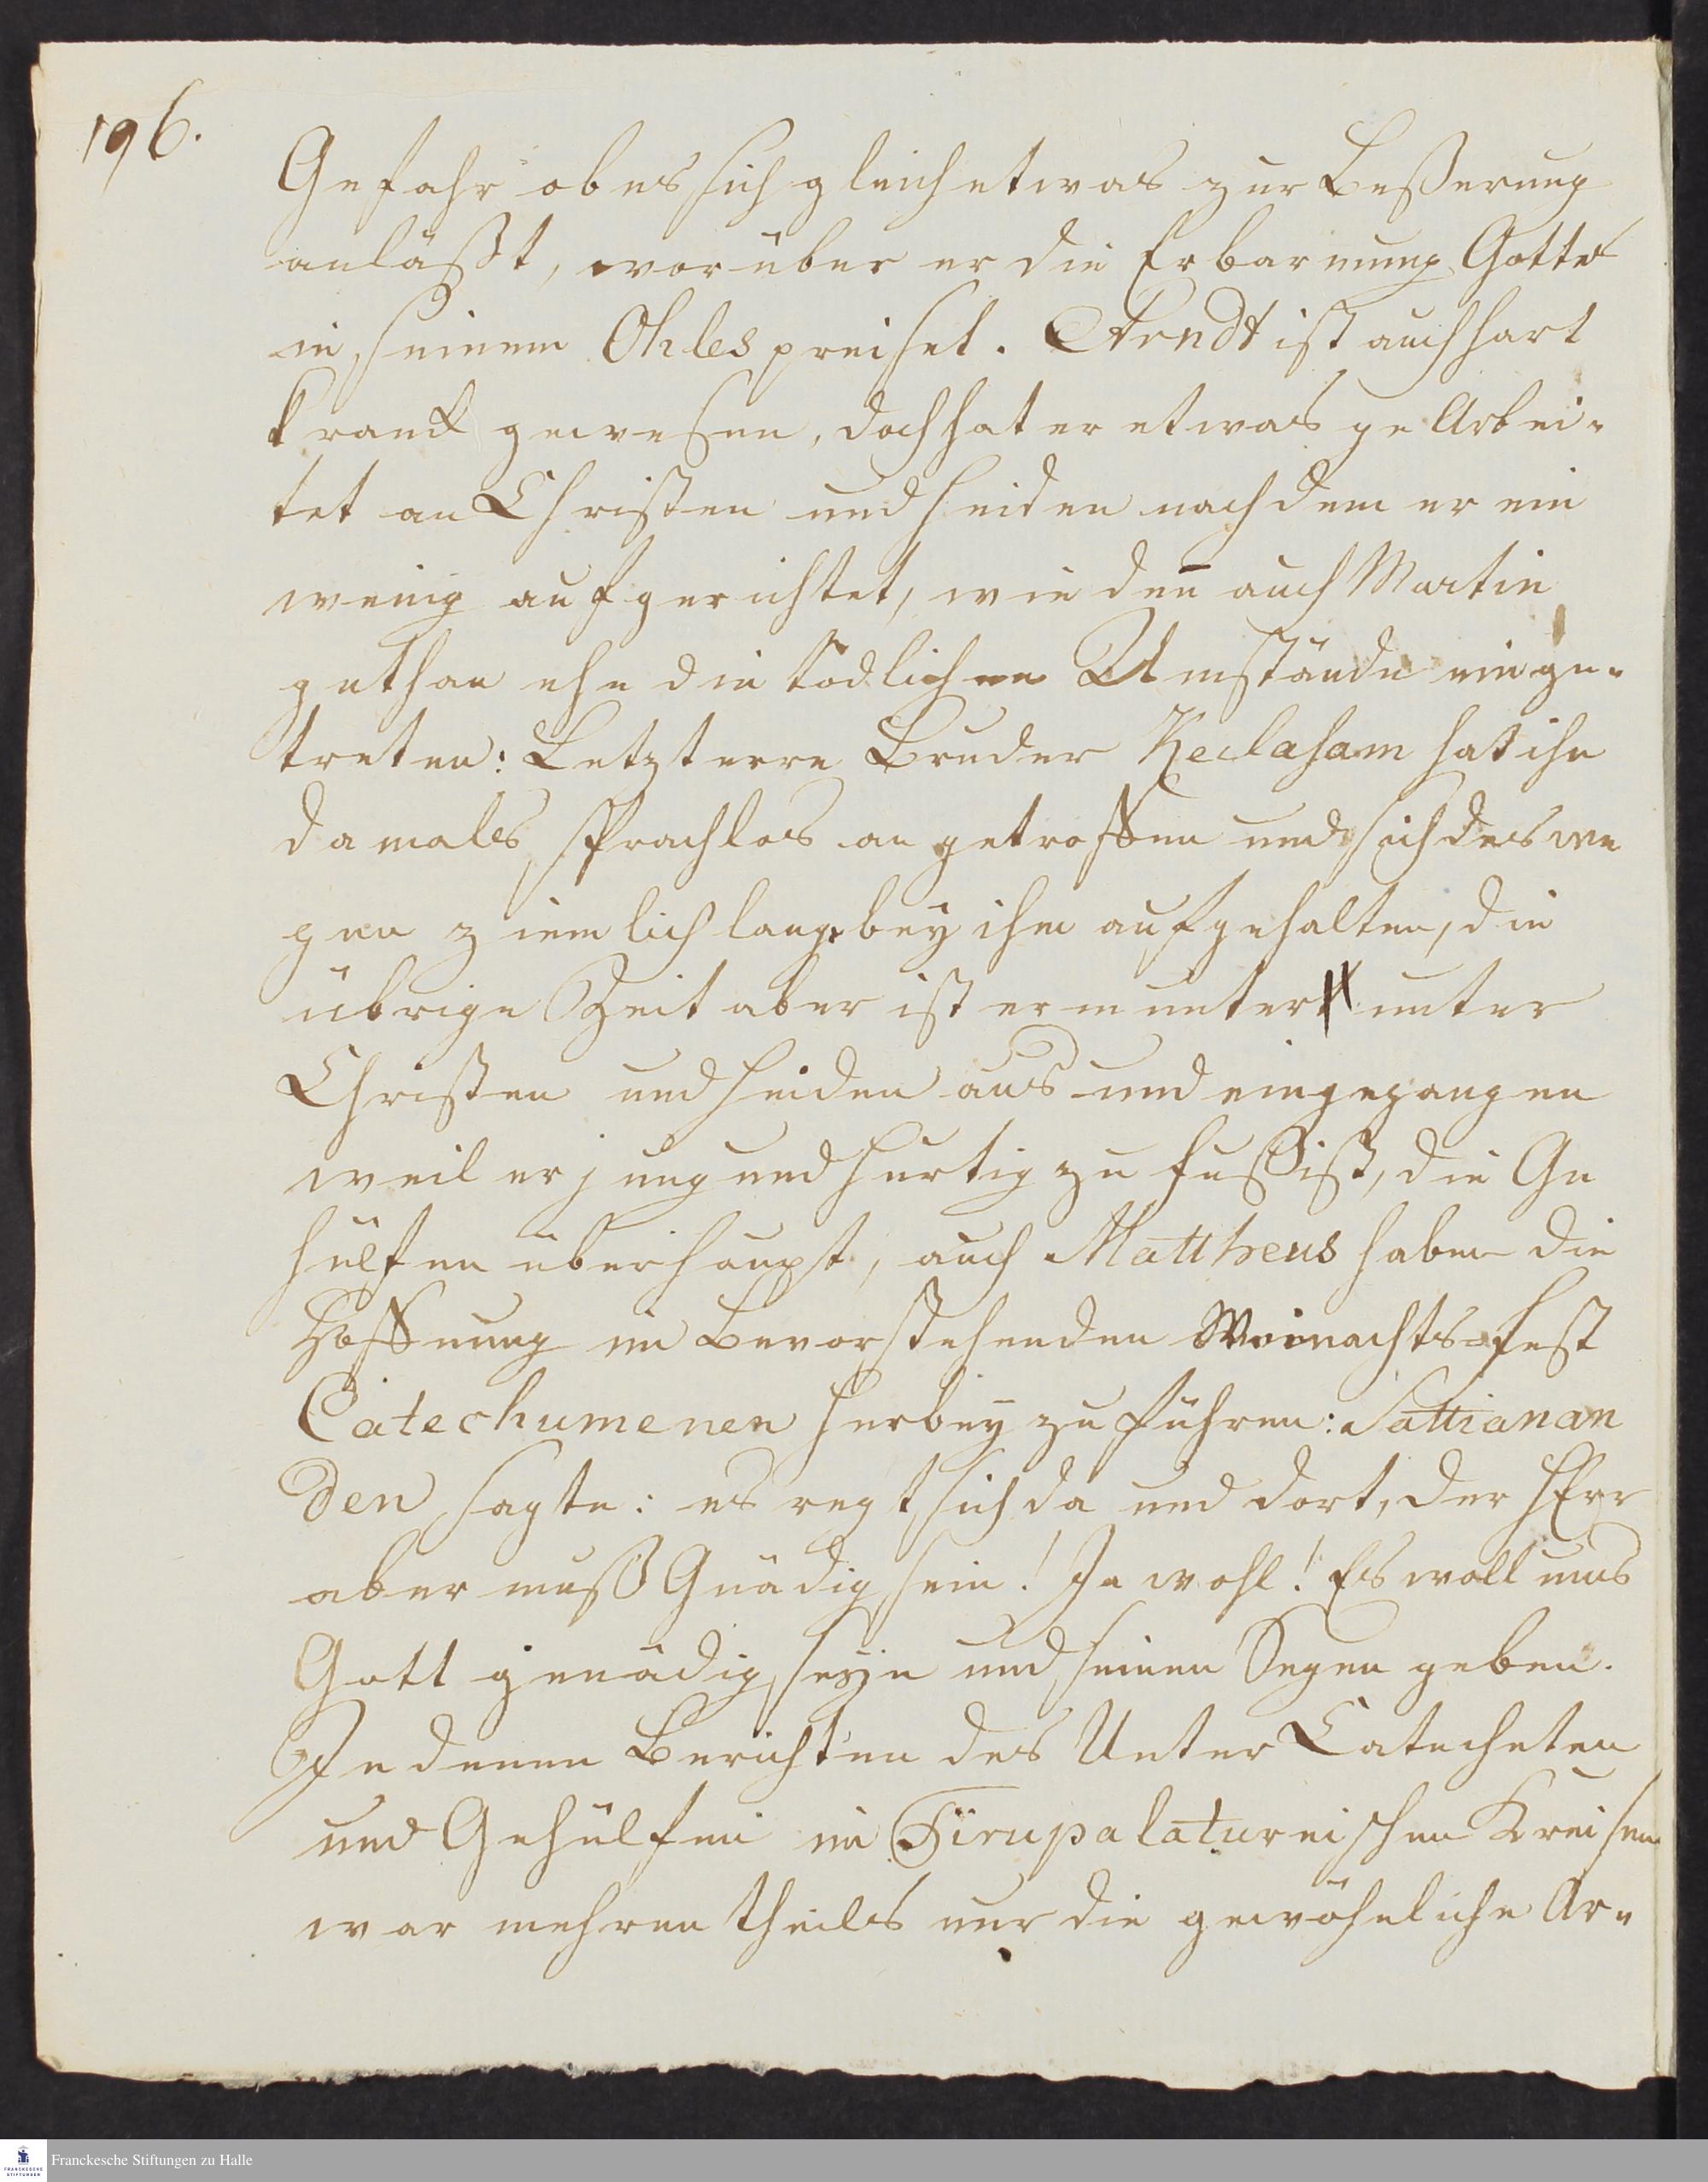 196.
Gefahr ob es sich gleich etwas zur Beßerung
anläßt, worüber er die Erbarmung Gottes
in seinem Ohles preiset. Arndt ist auch hart
krank gewesen, doch hat er etwas ge Arbei-
tet an Christen und Heiden nachdem er ein
wenig aufgerichtet, wie den̄ auch Martin
gethan ehe die tödlichen Umstände einge-
treten: Letzterre Bruder Keclasam hat ihn
damals sprachlos angetroffen und sich deswe
gen ziemlich lange bey ihm aufgehalten, die
übrige Zeit aber ist er munter unter
Christen und Heiden aus und eingegangen
weil er jung und hurtig zu fuß ist, die Ge
hülfen überhaupt, auch Mattheus haben die
Hoffnung im Bevorstehenden Weinachts-fest
Catechumenen herbey zu führen: Sattianan
den sagte: es regt sich da und dort, der HErr
aber muß Gnädig sein! Ja wohl! Es woll uns
Gott genädig seyn und seinen Segen geben.
In denen Berichten des Unter Catecheten
und Gehülfen im Tirupalatureischen Kreisen
war mehren theils nur die gewöhnliche Ar-
Franckesche Stiftungen zu Halle
FRANCKESCHE
STIFTUNGEN